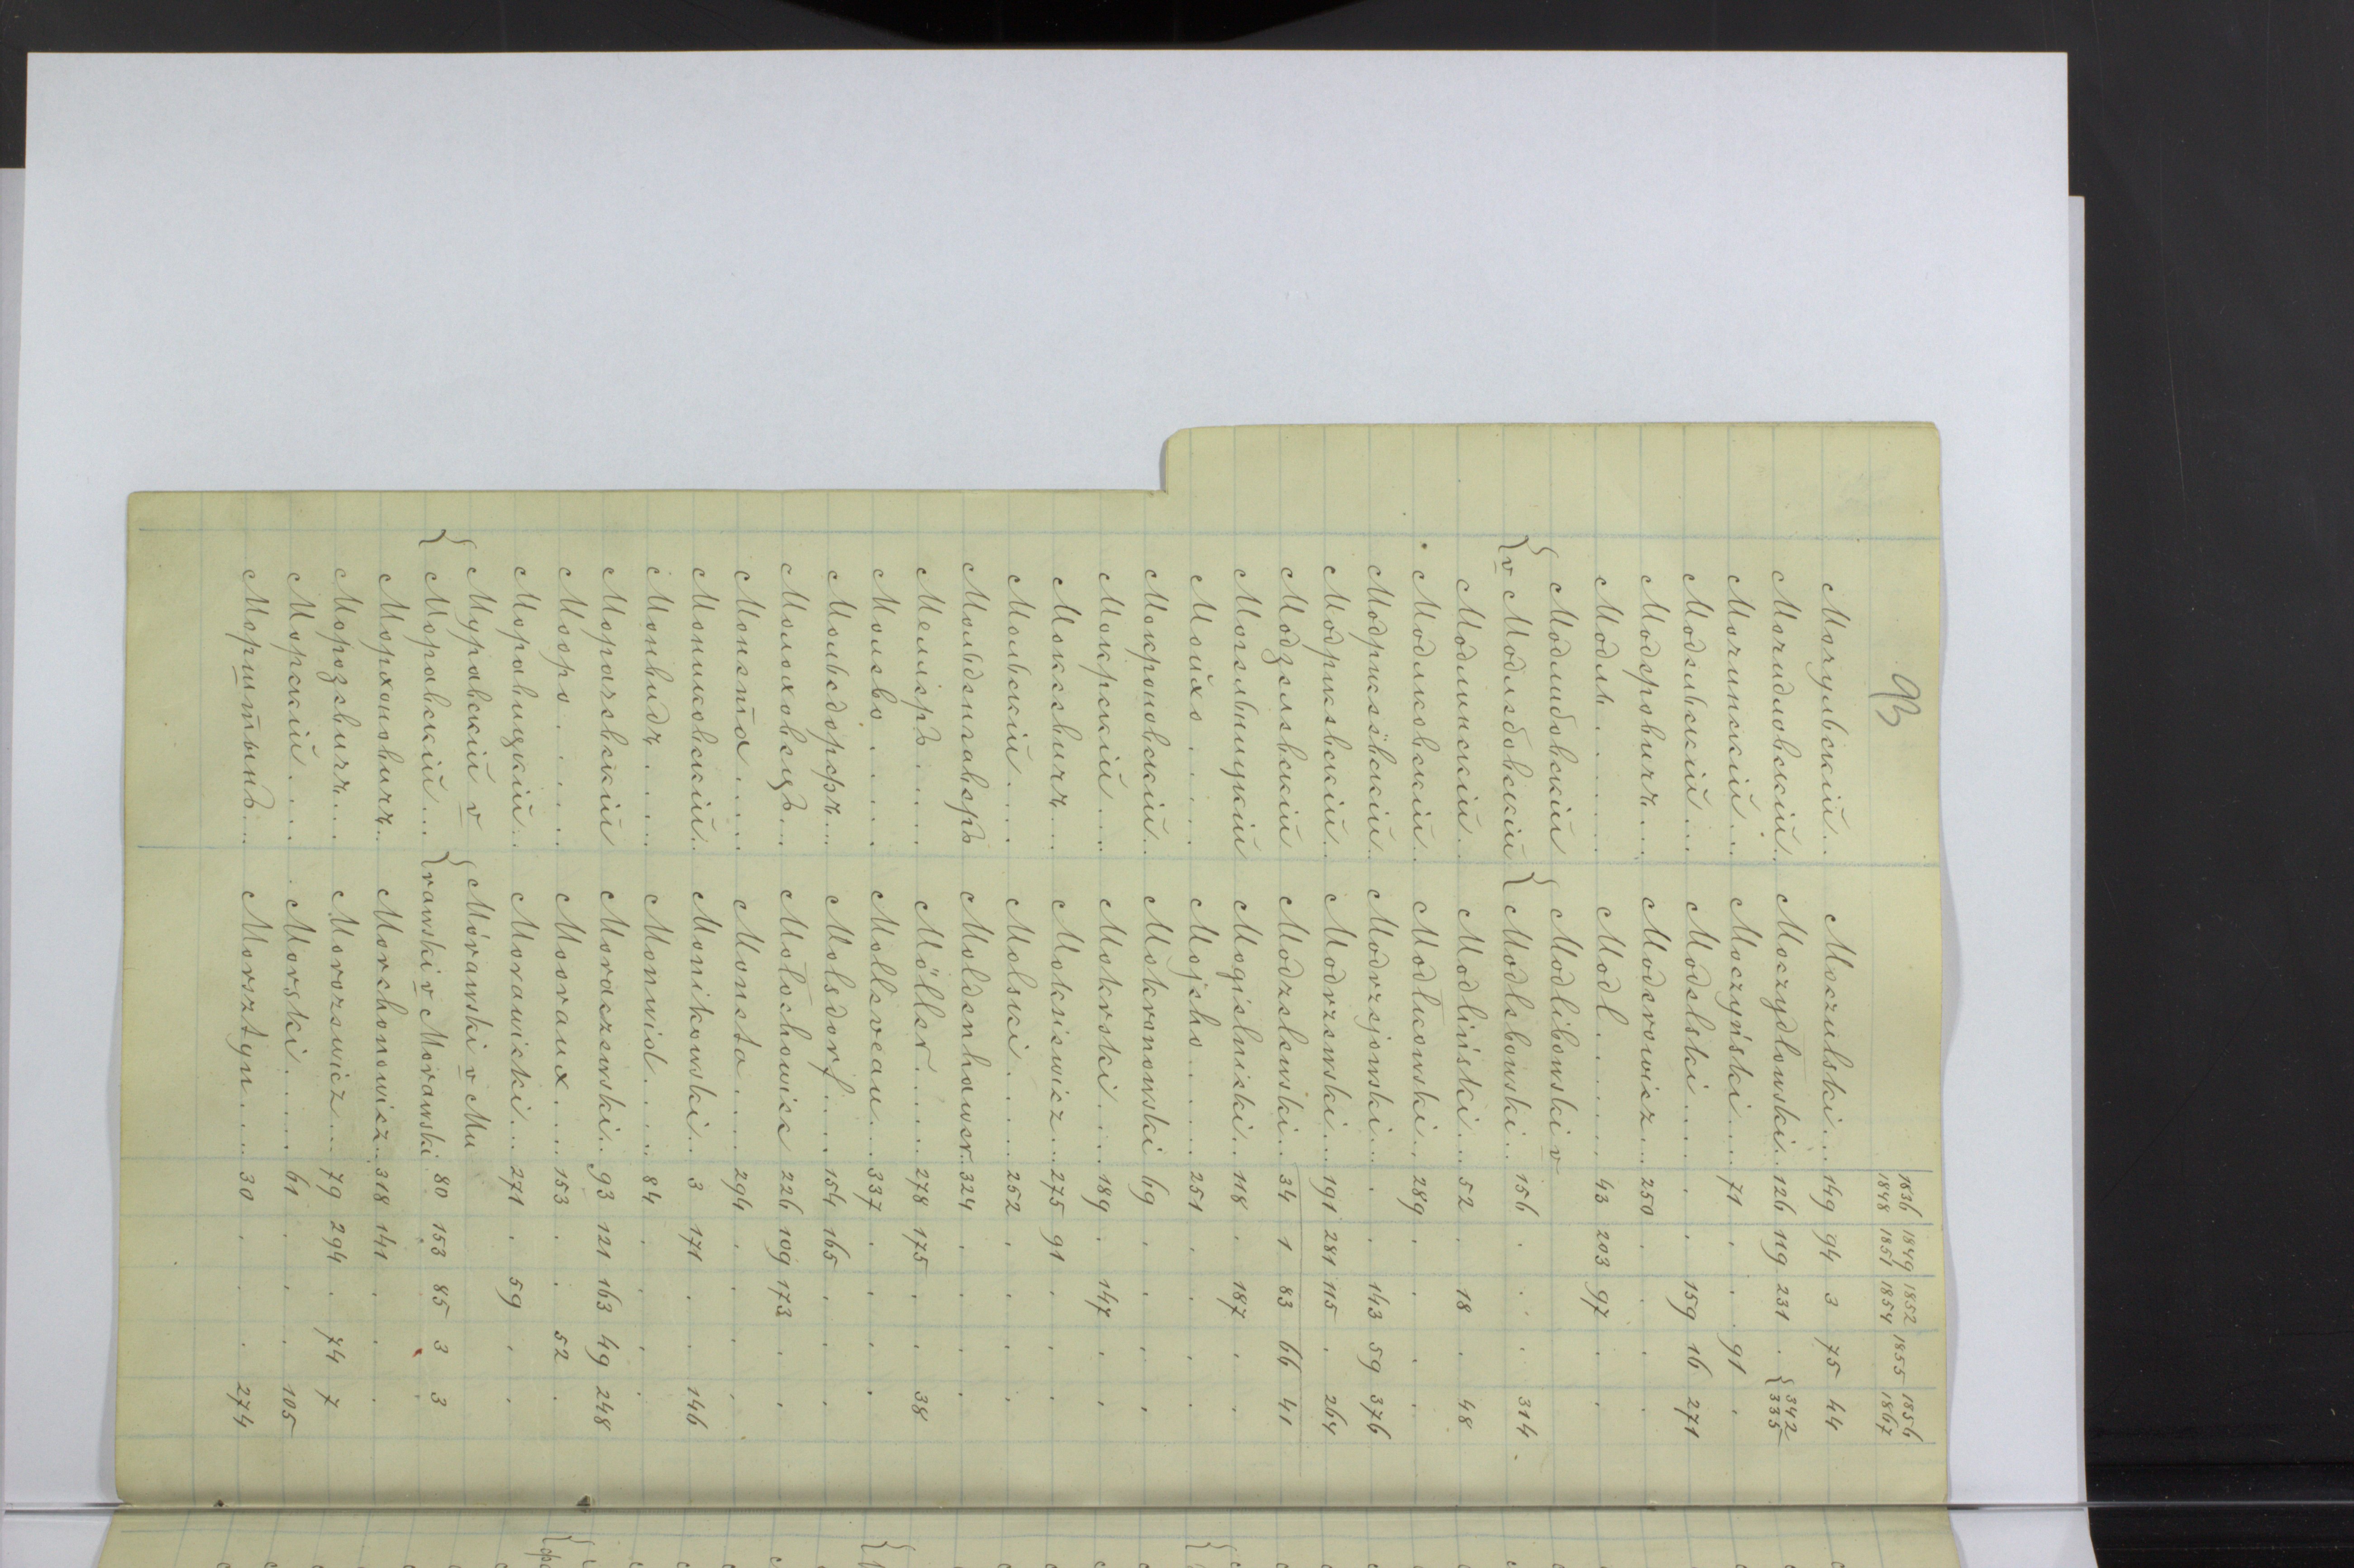 93
1836 1848 1849 1851 1852 1854 1855 1856 1867
Мочульскій... Moczulski... 149 94 3 75 44
Мочидловскій.. Moczydłowski.. 126 119 231 . {342 335
Мочинскій... Moczyński... 71 . . 91 .
Модельскій... Modelski.... . . 159 16 271
Модеровичъ... Moderowicz... 250 . . . .
Модль...... Modl...... 43 203 97 . .
{Модлибовскій {Modlibowski v
v Модлебовскій Modlebowski.. 156 . . . 314.
Модлинскій.. Modliński... 52 . 18 . 48
Модлковскій.. Modłkowski.. 289 . . . .
Модржеёвскій Modrzejowski... . . 143 59 376
Модржевскій.. Modrzewski... 191 281 115 . 264
Модзелевскій Modzelewski.. 34 1 83 66 41
Могельницкій Mogielnicki.. 118 . 187 . .
Мойхо..... Mojcho..... 251 . . . .
Мокроновскій.. Mokronowski 69 . . . .
Мокрскій.... Mokrski.... 189 . 147 . .
Моксевичъ... Moksiewicz... 275 91 . . .
Мольскій.... Molski.... 252 . . . .
Мольденгаверъ Moldenhawer.. 324 . . . .
Меллеръ.... Möller..... 278 175 . . 38
Молево..... Molleveau... 337 . . . .
Мольсдорфъ... Molsdorf.... 154 165 . . .
Молоховецъ... Mołochowiec 226 109 173 . .
Монета.... Moneta.... 294 . . . .
Мониковскій.. Monikowski.. 3 171 . . 146
Монвидъ.... Monwid.... 84 . . . .
Морачевскій Moraczewski.. 93 121 163 49 248
Мооро..... Mooraux.... 153 . . 52 .
Моравицкій.. Morawicki... 271 . 59 . .
{Муравскій v {Mórawski v Mu
Моравскій... rawski v Morawski 80 153 85 3 3
Морхоновичъ.. Morchonowicz.. 318 141 . . .
Морозевичъ... Morozewicz... 79 294 . 74 7
Морскій.... Morski..... 61 . . . 105
Морштынъ... Morsztyn.... 30 . . . 274